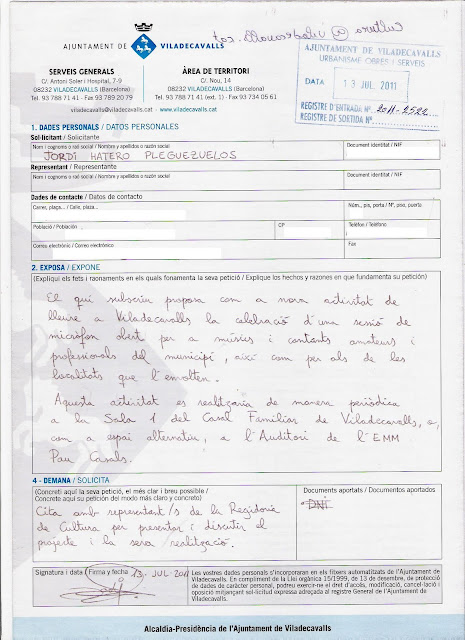 cultura@viladecavalls.cat
AJUNTAMENT DE VILADECAVALLS
SERVEIS GENERALS
C/. Antoni Soler i Hospital, 7-9
08232 VILADECAVALLS (Barcelona)
Tel. 93 788 71 41 - Fax 93 789 20 79
ÀREA DE TERRITORI
C/. Nou, 14
08232 VILADECAVALLS (Barcelona)
Tel. 93 788 71 41 (ext. 1) - Fax 93 734 05 61
viladecavalls@viladecavalls.cat - www.viladecavalls.cat
AJUNTAMENT DE VILADECAVALLS
URBANISME OBRES I SERVEIS
DATA 13 JUL. 2011
REGISTRE D'ENTRADA Nº. 2011-2522
REGISTRE DE SORTIDA Nº.
1. DADES PERSONALS / DATOS PERSONALES
Sol·licitant / Solicitante
Nom i cognoms o raó social / Nombre y apellidos o razón social
Document identitat / NIF
JORDI HATERO PLEGUEZUELOS
Representant / Representante
Nom i cognoms o raó social / Nombre y apellidos o razón social
Document identitat / NIF
Dades de contacte / Datos de contacto
Carrer, plaça... / Calle, plaza...
Núm., pis, porta / Nº, piso, puerta
Població / Población
CP
Telèfon / Teléfono
Correu electrònic / Correo electrónico
Fax
2. EXPOSA / EXPONE
(Expliqui els fets i raonaments en els quals fonamenta la seva petició / Explique los hechos y razones en que fundamenta su petición)
El qui subscriu proposa com a nova activitat de
lleure a Viladecavalls la celebració d'una sessió de
micròfon obert per a músics i cantants amateurs i
professionals del municipi, així com per als de les
localitats que l'envolten.
Aquesta activitat es realitzaria de manera periòdica
a la Sala 1 del Casal Familiar de Viladecavalls, o,
com a espai alternatiu, a l'Auditori de l'EMM
Pau Casals.
4 - DEMANA / SOLICITA
(Concreti aquí la seva petició, el més clar i breu possible /
Concrete aquí su petición del modo más claro y concreto)
Documents aportats / Documentos aportados
DNI
Cita amb representant/s de la Regidoria
de Cultura per presentar i discutir el
projecte i la seva realització.
Signatura i data / Firma y fecha 13 JUL 2011
Les vostres dades personals s'incorporaran en els fitxers automatitzats de l'Ajuntament de
Viladecavalls. En compliment de la Llei orgànica 15/1999, de 13 de desembre, de protecció
de dades de caràcter personal, podreu exercir-ne el dret d'accés, modificació, cancel·lació i
oposició mitjançant sol·licitud expressa adreçada al registre General de l'Ajuntament de
Viladecavalls.
Alcaldia-Presidència de l'Ajuntament de Viladecavalls